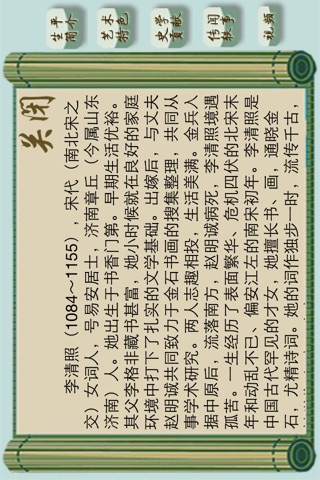 关闭
李清照（1084～1155），宋代（南北宋之
交）女词人，号易安居士，济南章丘（今属山东
济南）人。她出生于书香门第。早期生活优裕。
其父李格非藏书甚富，她小时候就在良好的家庭
环境中打下了扎实的文学基础。出嫁后，与丈夫
赵明诚共同致力于金石书画的搜集整理，共同从
事学术研究。两人志趣相投，生活美满。金兵入
据中原后，流落南方，赵明诚病死，李清照境遇
孤苦。一生经历了表面繁华、危机四伏的北宋末
年和动乱不已、偏安江左的南宋初年。李清照是
中国古代罕见的才女，她擅长书、画，通晓金
石，尤精诗词。她的词作独步一时，流传千古，
生平
简介
艺术
特色
文学
贡献
传闻
轶事
视频